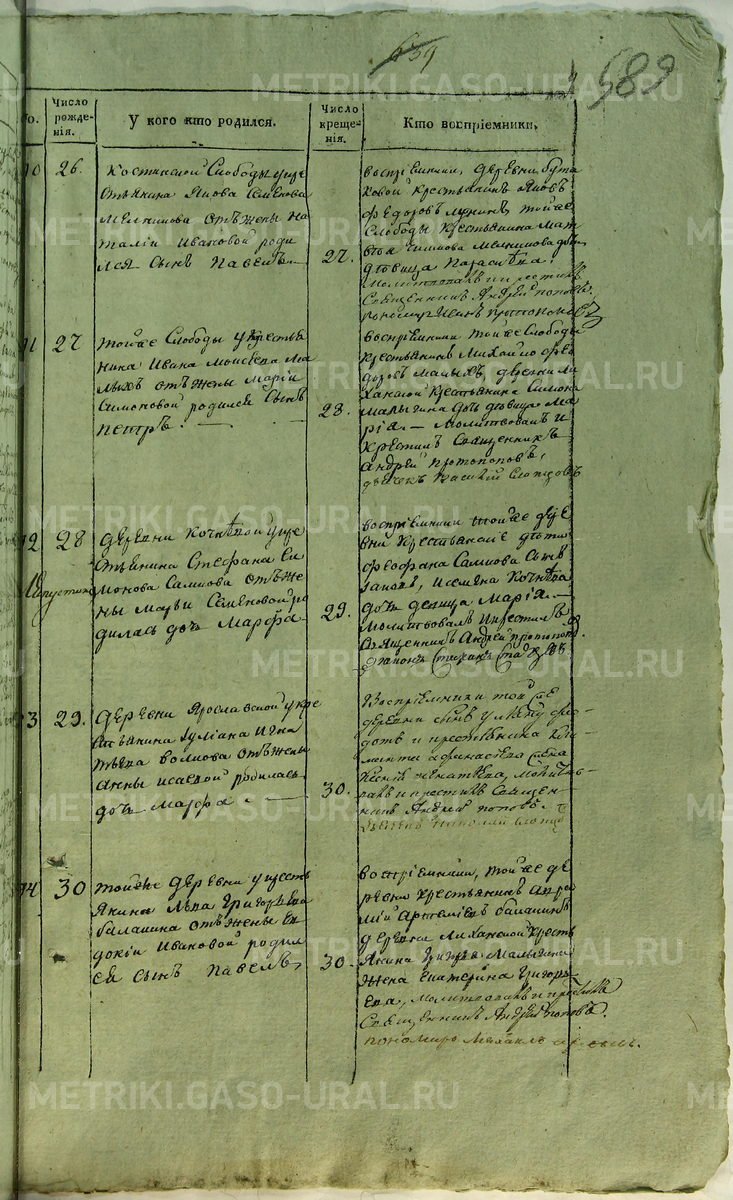 639
589
го.
Число рожденія.
У кого кто родился.
Число крещенія.
Кто воспріемники.
10
26.
Костинской Слободы у кре
стьянина Якова Семенова
Мелникова отъ жены На
таліи Ивановой роди
лся сынъ Павелъ
27.
воспріемники, деревни бута
ковой крестьянинъ Яковъ
Федоровъ той же
Слободы крестьянина Мат
вѣя Мелникова дочь
дѣвица Параскѣва.
Молитвовалъ и крестилъ
Священникъ Андрей Поповъ.
пономарь
91
27
той же Слободы у крестья
нина Ивана Моисѣева Ма
лыхъ отъ жены Маріи
Симоновой родился сынъ
Петръ.
28.
воспріемники той же Слободы
крестьянинъ Михайло Фе
доровъ Малыхъ, деревни Ли
ханской крестьянина Симона
Малыгина дочь дѣвица Ма
рія — Молитвовалъ и
крестилъ Священникъ
Андрей Протопоповъ,
дьячекъ Василій Слопцовъ
92
28
деревни Кочнѣвой у кре
стьянина Стефана
Самкова отъ же
ны Марьи Семеновой ро
дилась дочь Марфа
29.
воспріемники той же дере
вни крестьянскіе дѣти
Феофана Самкова сынъ
и Семена Кочнѣва
дочь девица Марія —
Молитвовалъ и крестилъ
Священникъ Андрей Протопопо
Августина
93
29.
деревни Ярославской у кре
стьянина Іуліана Игна
тьева Волкова отъ жены
Анны Исаевой родилась
дочь Марфа. —
30.
Воспріемники той же
деревни сынъ
и крестьянина Кли
мента Афанасьева
крестилъ Священ
никъ Андрей Поповъ.
дьячекъ Николай
94
30
той же деревни у кресть
янина Льва Григорьева
балакина отъ жены Ев
докіи Ивановой родил
ся сынъ Павелъ,
30.
воспріемники, той же де
ревни крестьянинъ
Артеміевъ балакинъ
деревни Лиханской кресть
янина Григорья Малыгина
жена Екатерина Григорь
ева, молитвовалъ и крестилъ
Священникъ Андрей Поповъ.
пономарь Михаилъ
METRIKI.GASO-URAL.RU